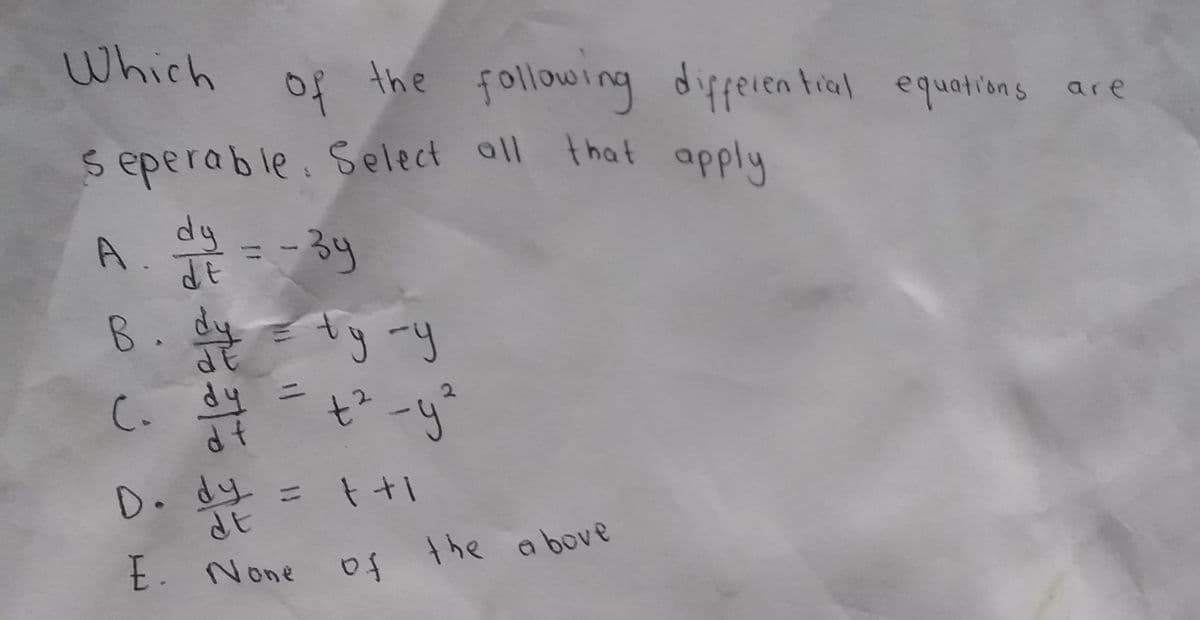 Which of the following differential equations are
seperable. Select all that apply
A. dy/dt = -3y
B. dy/dt = ty-y
C. dy/dt = t² -y²
D. dy/dt = t+1
E. None of the above